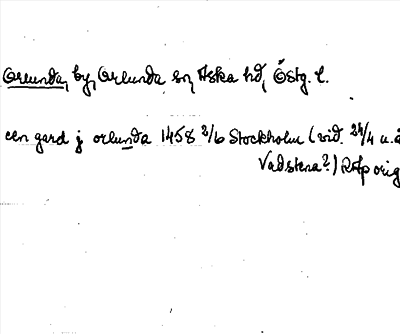 Orlunda, by, Orlunda sn, Aska hd, Östg. l.
een gard j orlunda 1458 2/6 Stockholm (vid. 24/4 u.å
Vadstena?) RAp orig